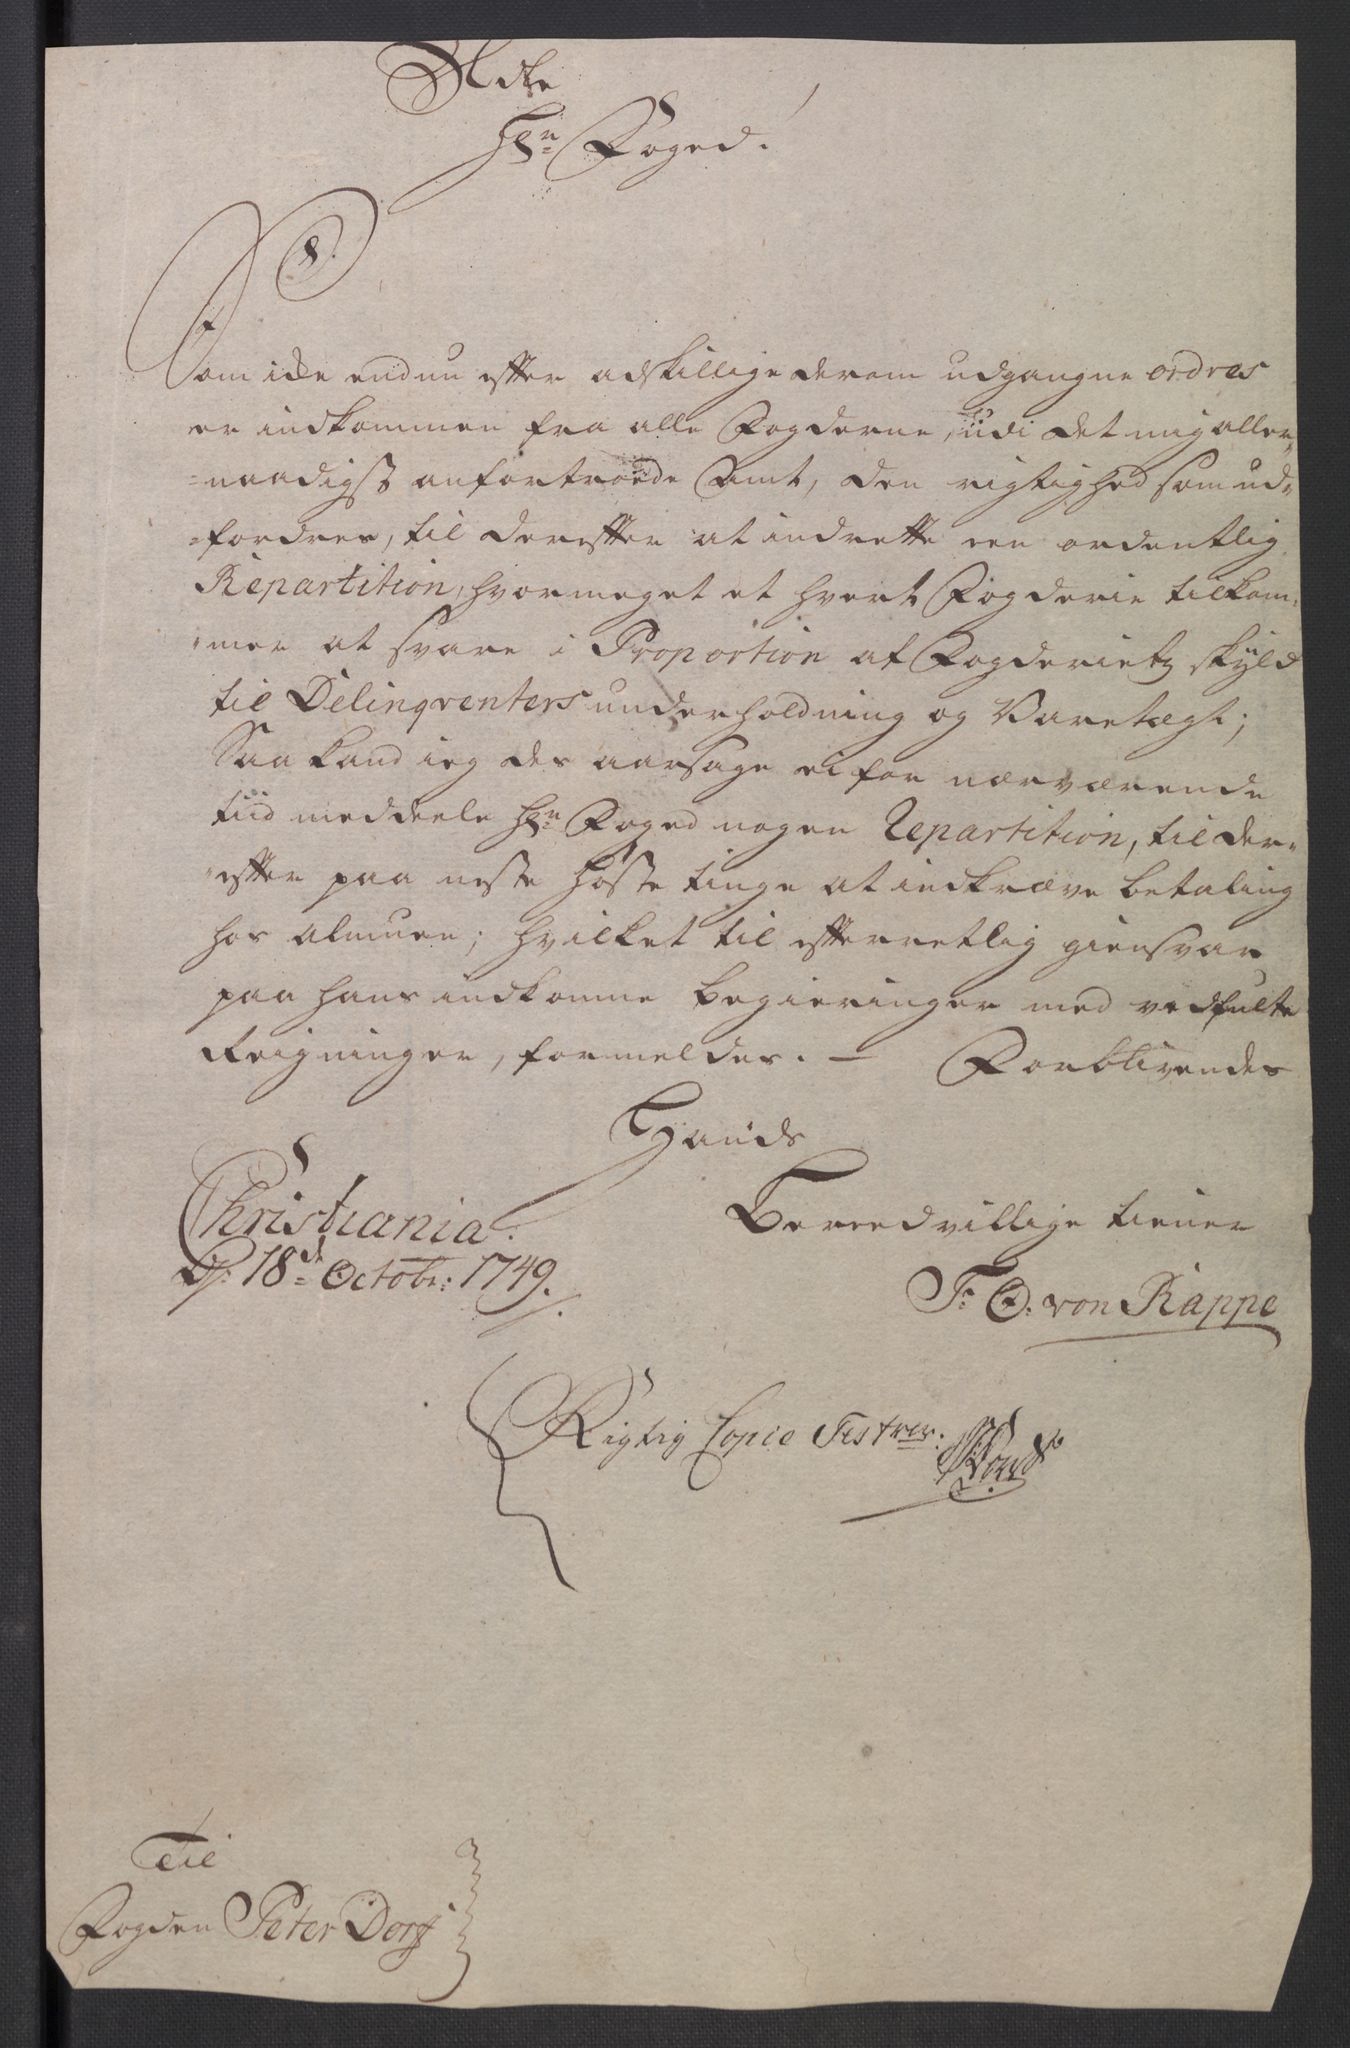 Ædle
Hr. Foged!
Som icke endnu efter adskillige derom udgangne ordres
er indkommen fra alle Fogderne, udi det mig aller-
-naadigst anfortroede Amt, den rigtighed som ud-
-fordres, til derefter at indrette een ordentlig
Repartition, hvormeget et hvert Fogderie tilkom-
-mer at svare i Proportion af Fogderietz skyld
til Delinqventers underholdning og Varetægt;
Saa kand ieg des aarsage ei for nærværende
tiid meddeele Hr. Foged nogen Repartition, til der-
-efter paa neste Høste tinge at indkræve betaling
hos almuen; hvilket til efterretlig giensvar
paa hans indkomne begieringer med vedfulte
Reigninger, formeldes. — Forblivendes
Hands
Christiania
D: 18de Octobr: 1749.
Bereedvillige tiener
F: O: von Rappe
Rigtig Copie Testrer.
Till
Fogden Peter Dorff